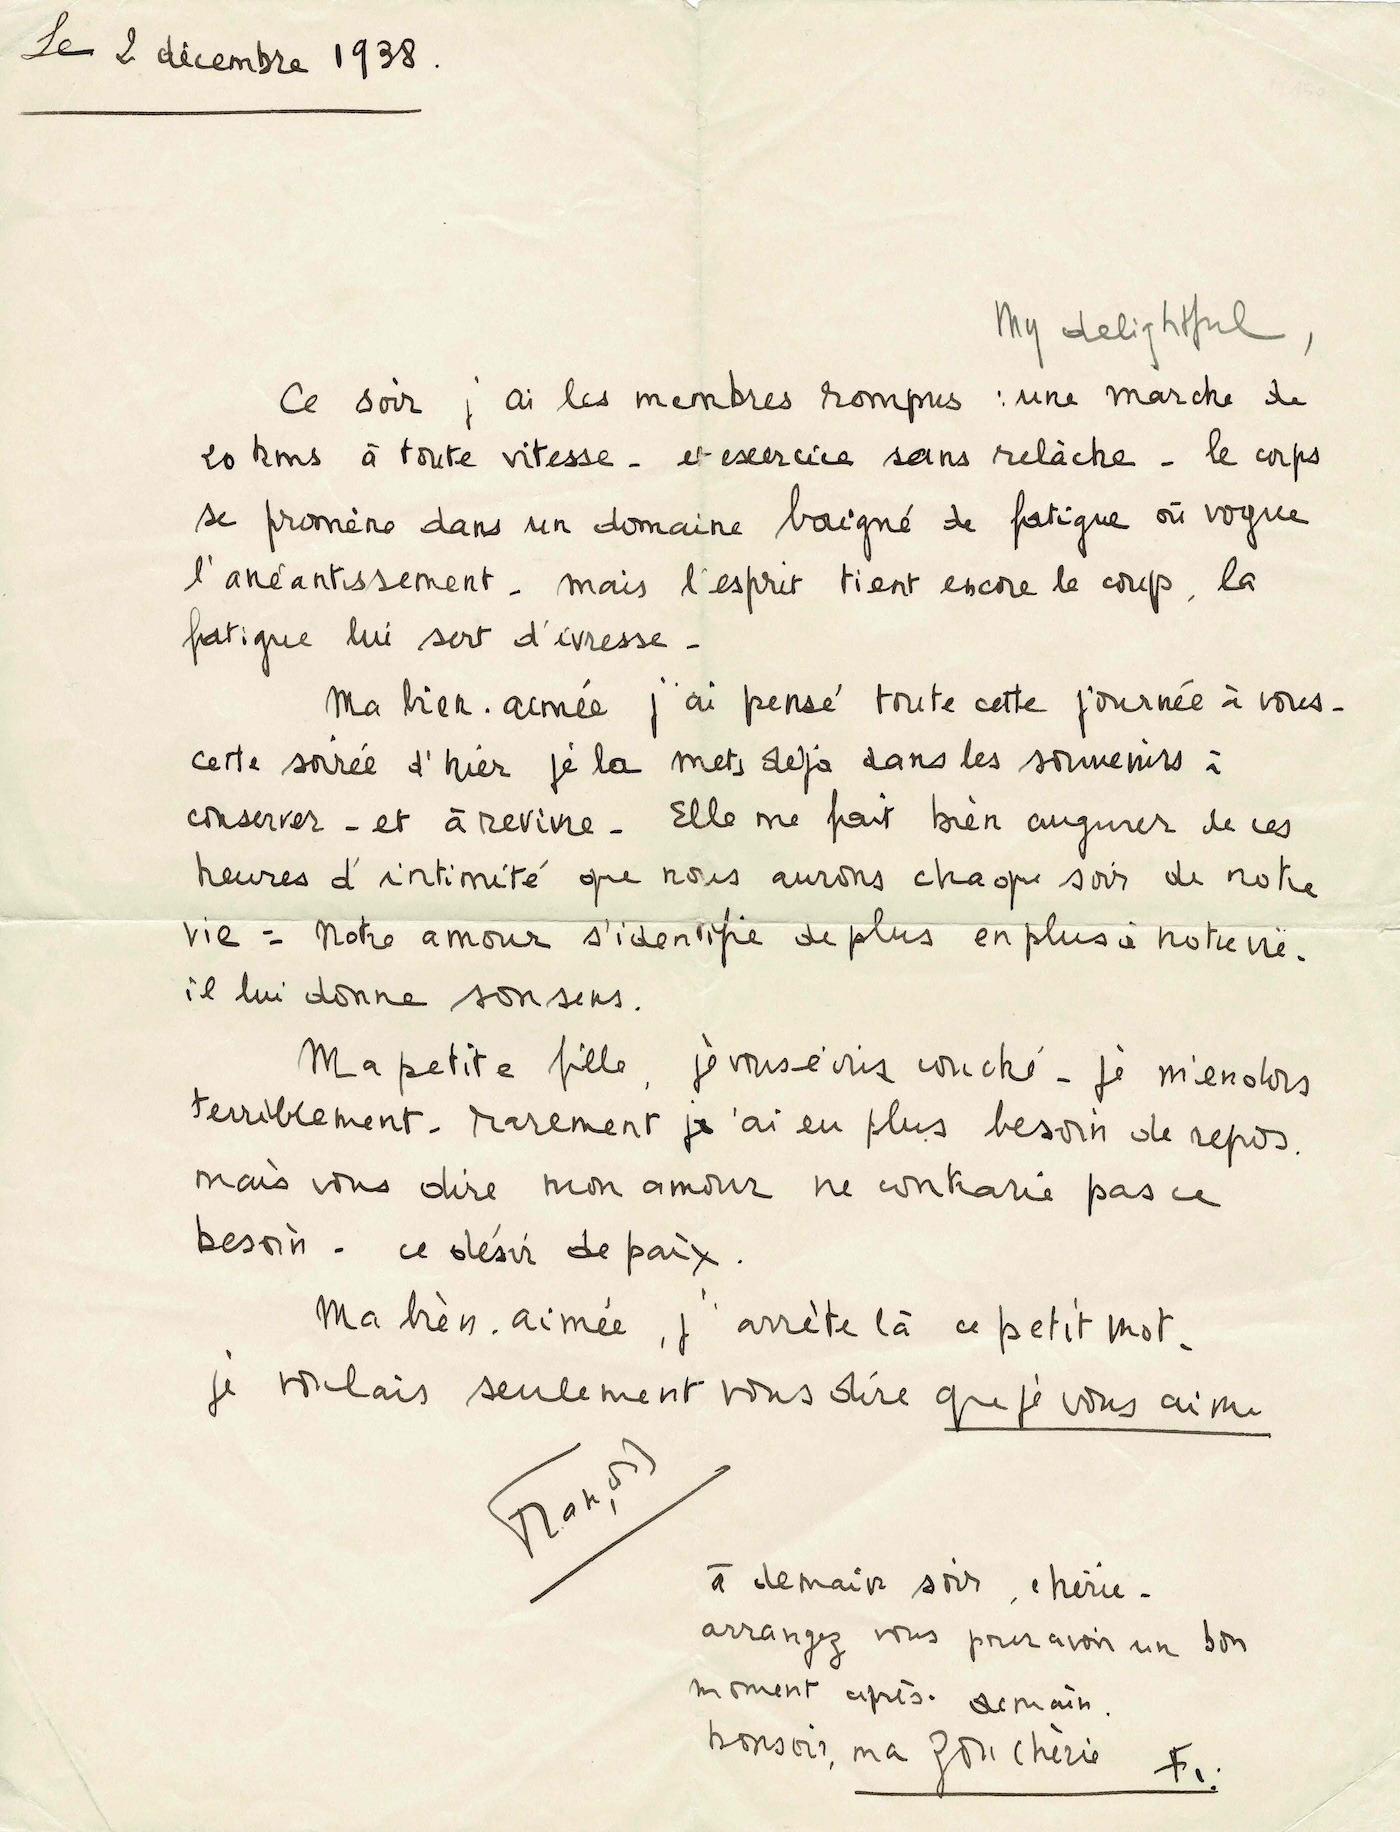 Le 2 décembre 1938.
My delightful,
Ce soir j'ai les membres rompus : une marche de
20 kms à toute vitesse - et exercice sans relâche - le corps
se promène dans un domaine baigné de fatigue où vogue
l'anéantissement - mais l'esprit tient encore le coup, la
fatigue lui sert d'ivresse -
Ma bien-aimée j'ai pensé toute cette journée à vous -
cette soirée d'hier je la mets déjà dans les souvenirs à
conserver - et à revivre - Elle me fait bien augurer de ces
heures d'intimité que nous aurons chaque soir de notre
vie = Notre amour s'identifie de plus en plus à notre vie.
il lui donne son sens.
Ma petite fille, je vous écris couché - je m'endors
terriblement - rarement j'ai eu plus besoin de repos.
mais vous dire mon amour ne contrarie pas ce
besoin - ce désir de paix.
Ma bien-aimée, j'arrête là ce petit mot -
je voulais seulement vous dire que je vous aime
François
à demain soir, chérie -
arrangez vous pour avoir un bon
moment après-demain.
bonsoir, ma Zou chérie F.